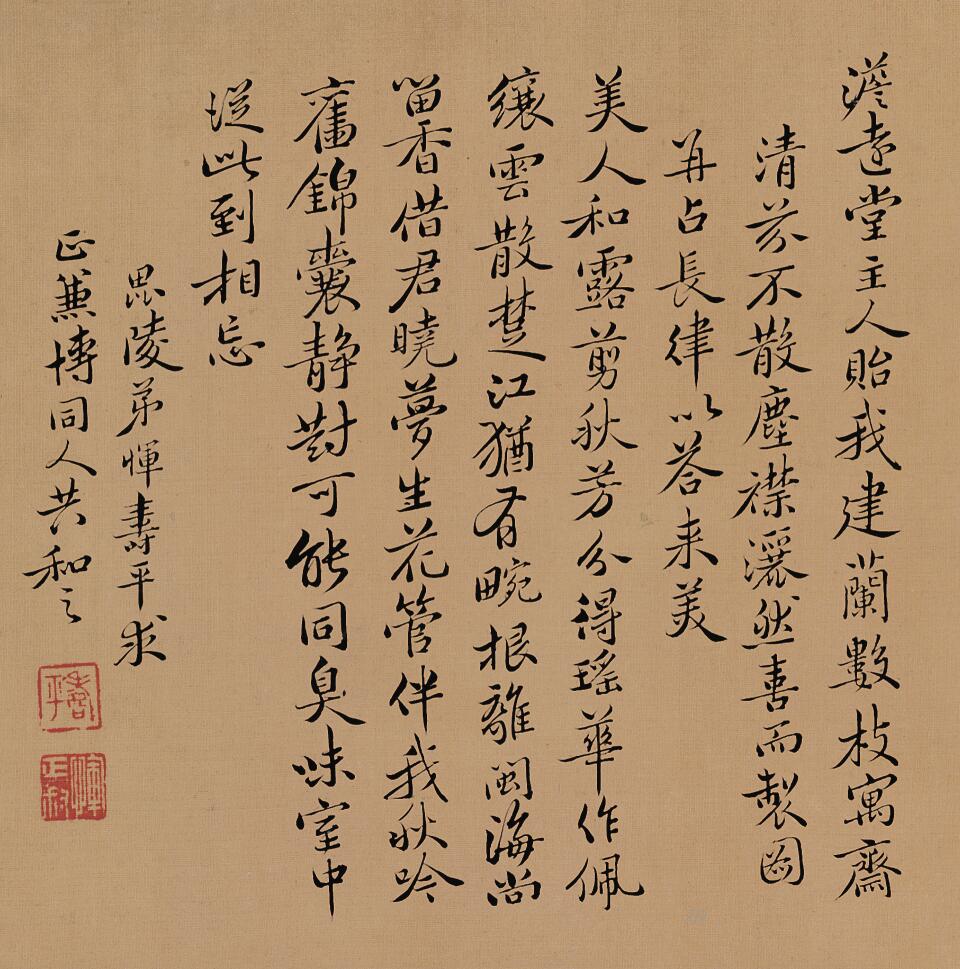 澹遠堂主人貽我建蘭數枝寓齋
清芬不散塵襟灑然喜而製圖
并占長律以答来美
美人和露剪秋芳分得瑶華作佩
纕雲散楚江猶有畹根離閩海尚
留香借君曉夢生花管伴我秋吟
舊錦囊静對可能同臭味室中
從此到相忘
毘陵弟惲壽平求
正蕙博同人共和之
壽平
惲正叔